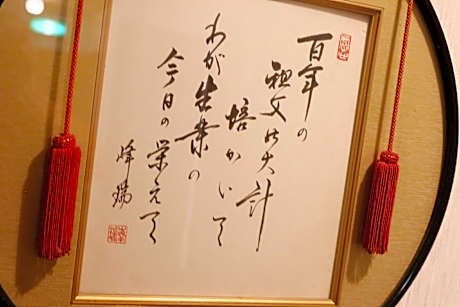 百年の
祖父の大計
培かいて
わが生業の
今日の栄えて
峰